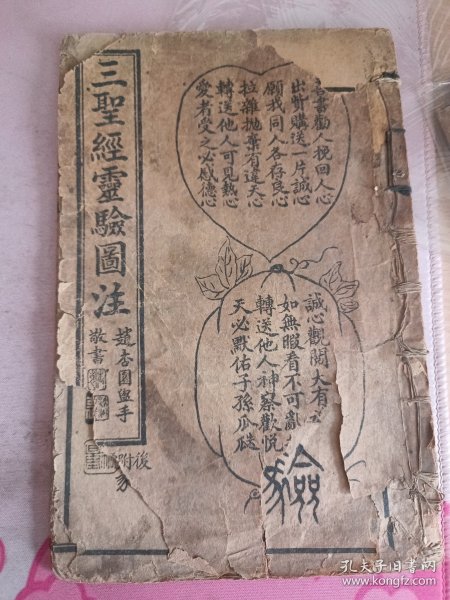 三聖經靈驗圖注
趙杏園盥手
敬書
後附
書勸人挽回人心
出所購送一片誠心
願我同人各存良心
拉雜拋棄有違天心
轉送他人可見熱心
愛者受之必感德心
誠心觀閱大有
如無暇看不可亂
轉送他人神察歡悅
天必默佑子孫瓜瓞
孔夫子旧书网
www.kongfz.com